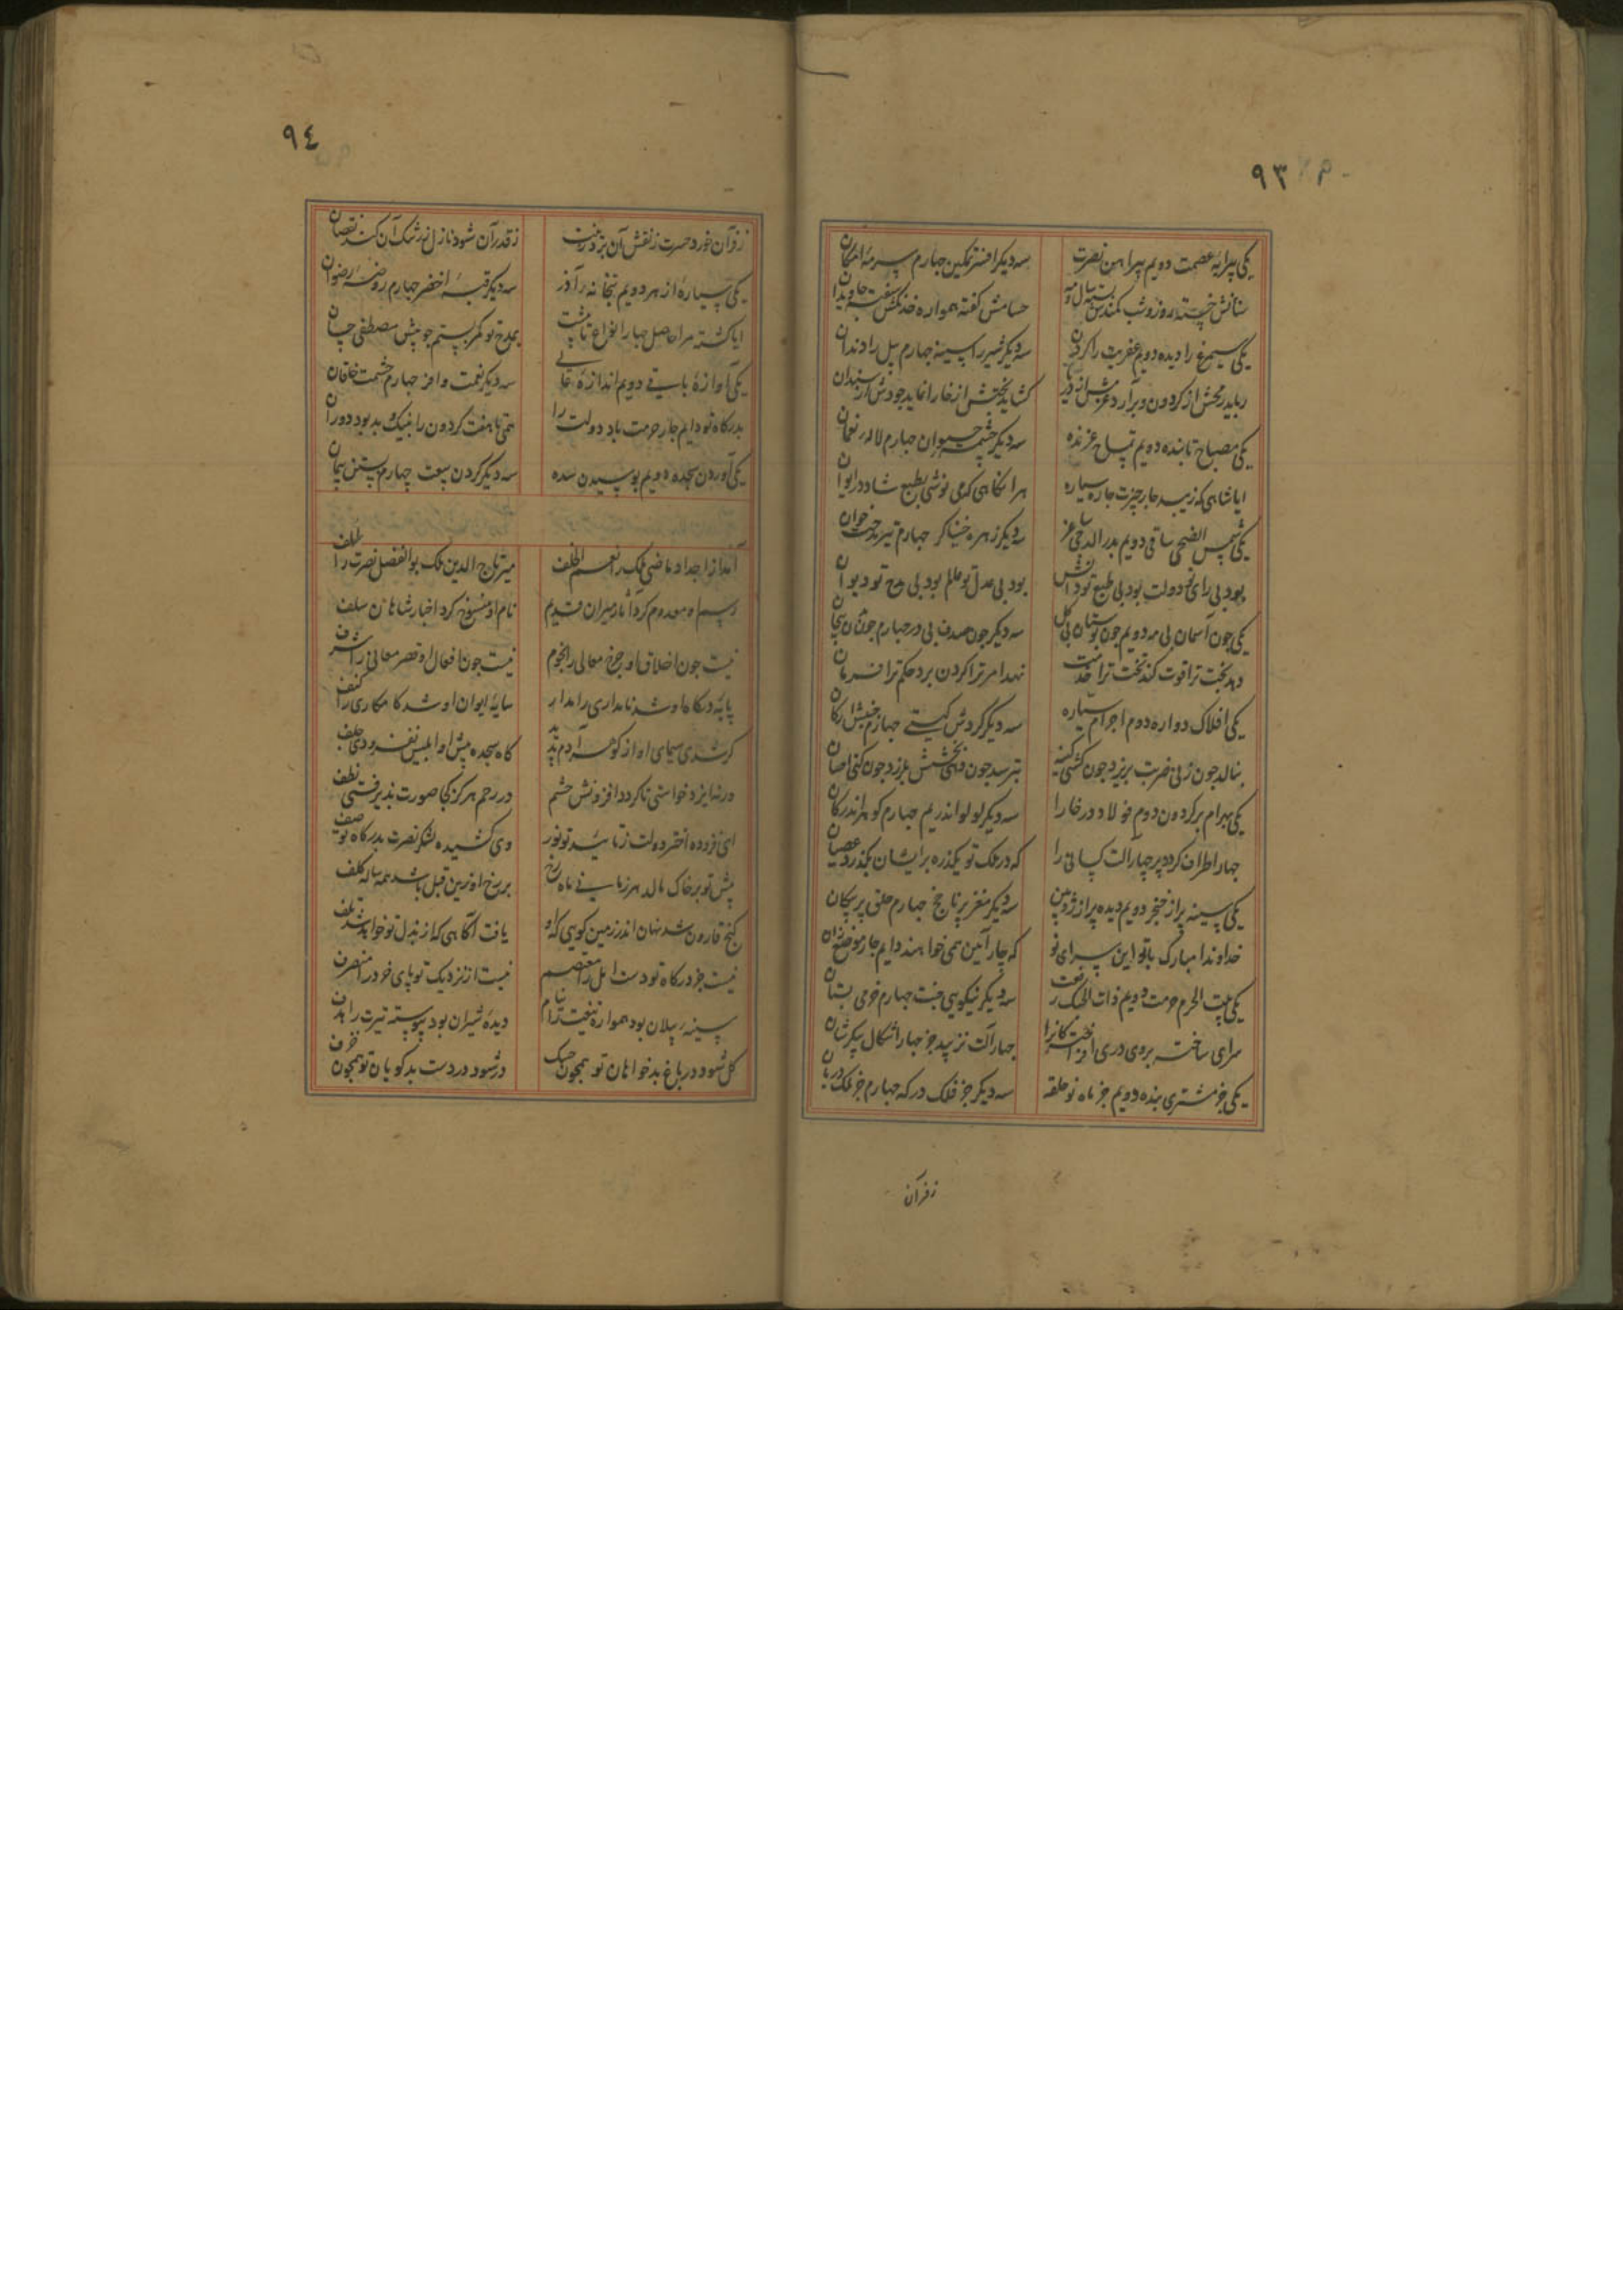 ٩٣
یکی پیرایهٔ عصمت دویم پیراهن نصرت سه دیکر افسر تمکین جهارم سرمهٔ امکان
سنانش خسته دارد روز و شب کمندش بسته سال و مه حسامش کفته همواره خدنکش سفته جاویدان
یکی سیمرغ را دیده دویم عفریت را کردن سه دیکر شیر را سینه جهارم پیل را دندان
رباید رمحش از کردون برآرد عزمش از دریا کشاید بختش از خارا نماید جودش از سندان
یکی مصباح تابنده دویم تمساح غرنده سه دیکر چشمهٔ حیوان جهارم لالهٔ نعمان
ایا شاهی که زیبد جار جیزت جار سیاره هر انکاهی که می نوشی بطبع شاد در ایوان
یکی شمس الضحی ساقی دویم بدر الدجی ساغر سه دیکر زهره خنیاکر جهارم تیر مدحت خوان
بود بی رای تو دولت بود بی طبع تو دانش بود بی عدل تو عالم بود بی مدح تو دیوان
یکی جون آسمان بی مه دویم جون بوستان بی کل سه دیکر جون صدف بی در جهارم جون تن بیجان
دهد بخت ترا قوت کند تخت ترا خدمت نهد امر ترا کردن برد حکم ترا فرمان
یکی افلاک دواره دوم اجرام سیاره سه دیکر کردش کیتی جهارم جنبش ارکان
بنالد جون زنی ضربت بریزد جون کشی کینه بترسد جون بلرزد جون کنی احسان
یکی بهرام بر کردون دوم فولاد در خارا سه دیکر لولو اندر یم جهارم کوهر اندر کان
جهار اطراف کردد پر جهار الت کسانی را که در ملک تو یکذره برایشان بکذرد عصیان
یکی سینه پر از خنجر دویم دیده پر از زوبین سه دیکر مغز پر ناجخ جهارم حلق پر پیکان
خداوندا مبارک باد این سرای نو که جار آیین همی خواهند دایم جار موضع زان
یکی بیت الحرم حرمت دویم ذات الحبک رفعت سه دیکر نیکویی جنت جهارم خرمی بستان
سرای ساخته بروی دری جهار آلت نزیبد جز جهار اشکال پیکرشان
یکی جز مشتری بنده دویم جز ماه نو حلقه سه دیکر جز فلک درکه جهارم جز ملک دربان
زفرآن
٩٤
زفرآن خورد حسرت زنقش آن برد زینت زقدر آن شود نازل زرشک آن کند نقصان
یکی سیارهٔ ازهر دویم بتخانهٔ آذر سه دیکر قبهٔ اخضر جهارم روضهٔ رضوان
ایا کشته مرا حاصل جهار انواع تا بمدح تو کمر بستم جو پیش مصطفی حسان
یکی آوازهٔ باقی دویم اندازهٔ عالی سه دیکر نعمت وافر جهارم حشمت خاقان
بدرکاه تو دایم جار حرمت باد دولت را همی تا هفت کردون را بنیک و بد بود دوران
یکی آوردن سجده دویم بوسیدن سده سه دیکر کردن بیعت چهارم بستن پیمان
آمد از اجداد ماضی ملک را نعم الخلف میر تاج الدین ملک بوالفضل نصرت را خلف
رسم او معدوم کرد آثار میران قدیم نام او منسوخ کرد اخبار شاهان سلف
نیست جون اخلاق او جرخ معالی را نجوم نیست جون افعال او قصر معانی را شرف
پایهٔ درکاه او شد نامداری را مدار سایهٔ ایوان او شد کامکاری را کنف
کر شدی سیمای او از کوهر آدم پدید کاه سجده پیش او ابلیس نفزودی صلف
ورنه ایزد خواستی تا کردد افزونش حشم در رحم هرکز کجا صورت پذیرفتی نطف
ای فزوده اختر دولت زتایید تو نور وی کشیده لشکر نصرت بدرکاه تو صف
پیش تو بر خاک مالد هر زمانی ماه رخ بر رخ او زین قبل باشد همه ساله کلف
کنج قارون شد نهان اندر زمین کویی که او یافت آکاهی که از بذل تو خواهد شد تلف
نیست جز درکاه تو دست امل را معتصم نیست از نزدیک تو پای خرد را منصرف
سینهٔ پیلان بود همواره تیغت را نیام دیدهٔ شیران بود پیوسته تیرت را هدف
کل شود در باغ بدخواهان تو همجون خسک در شود در دست بدکویان تو همجون خزف